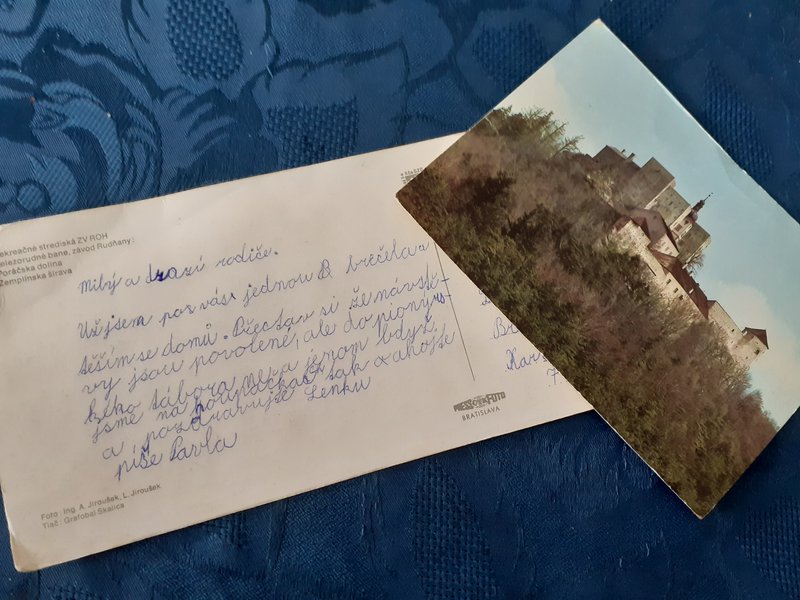 ekreačné strediská ZV ROH
elezorudné bane, závod Rudňany:
Poráčska dolina
Zemplínska šírava
milý a drazí rodiče.
Už jsem pro vás jednou B. brečela a
těším se domů. Představ si že návště-
vy jsou povolené, ale do pionýr-
kého tábora ne a jenom když
jsme na
a pozdravujte Lenku tak a ahoj
píše Pavla
Foto: Ing. A. Jiroušek, L. Jiroušek
Tlač: Grafobal Skalica
PRESSFOTO
BRATISLAVA
Br
Kar
7